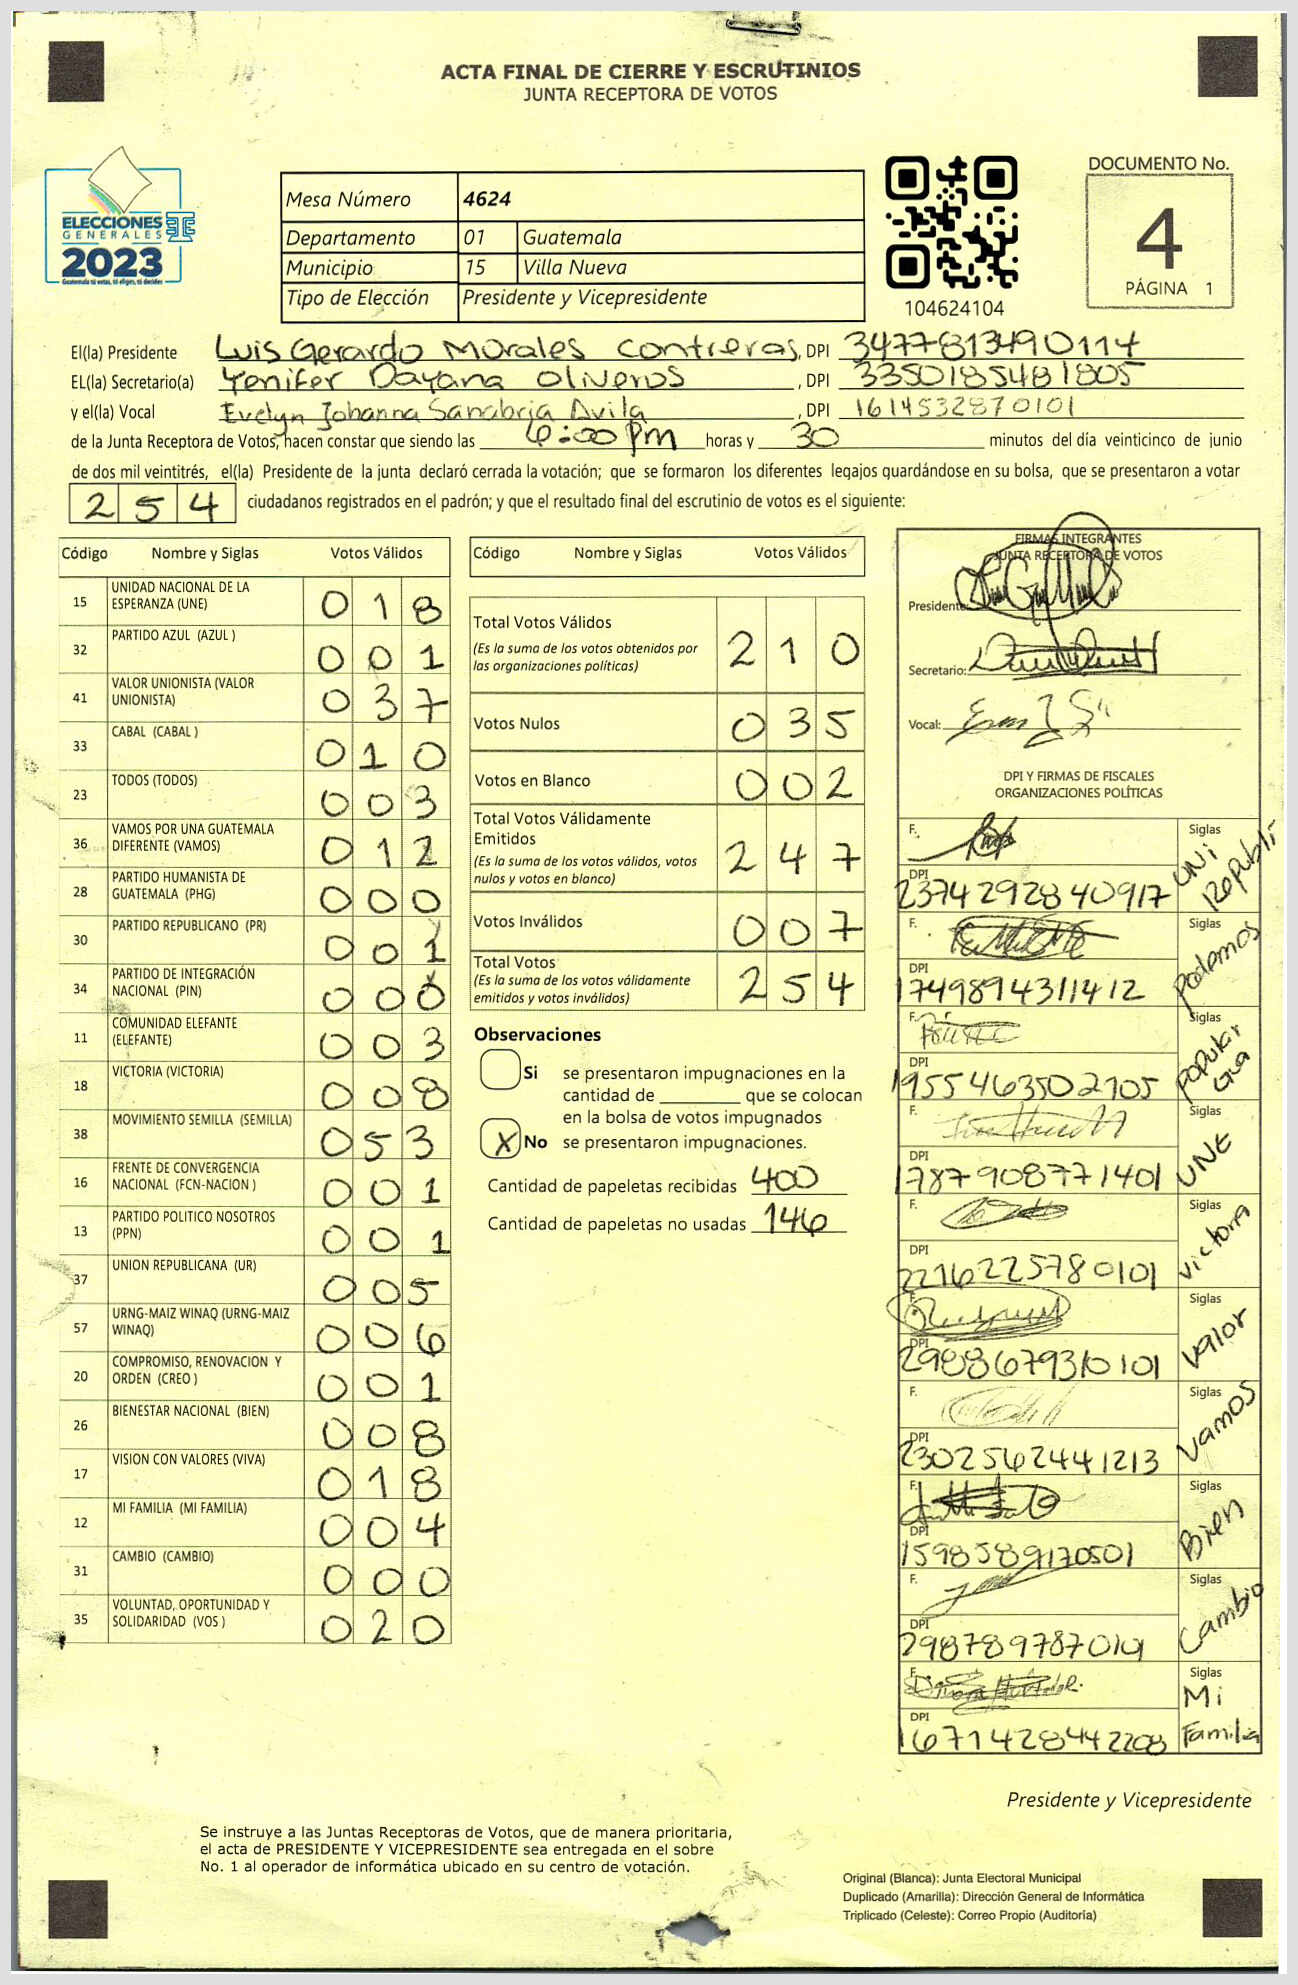 ACTA FINAL DE CIERRE Y ESCRUTINIOS
JUNTA RECEPTORA DE VOTOS
ELECCIONES
GENERALES
2023
Guatemala tú votas, tú eliges, tú decides
Mesa Número 4624
Departamento 01 Guatemala
Municipio 15 Villa Nueva
Tipo de Elección Presidente y Vicepresidente
104624104
DOCUMENTO No.
4
PÁGINA 1
El(la) Presidente Luis Gerardo Morales Contreras, DPI 3477813490114
EL(la) Secretario(a) Yenifer Dayana Oliveros, DPI 3350185481805
y el(la) Vocal Evelyn Johanna Sanabria Avila, DPI 1614532870101
de la Junta Receptora de Votos, hacen constar que siendo las 6:00 pm horas y 30 minutos del día veinticinco de junio
de dos mil veintitrés, el(la) Presidente de la junta declaró cerrada la votación; que se formaron los diferentes legajos guardándose en su bolsa, que se presentaron a votar
254 ciudadanos registrados en el padrón; y que el resultado final del escrutinio de votos es el siguiente:
Código Nombre y Siglas Votos Válidos
15 UNIDAD NACIONAL DE LA ESPERANZA (UNE) 018
32 PARTIDO AZUL (AZUL ) 001
41 VALOR UNIONISTA (VALOR UNIONISTA) 037
33 CABAL (CABAL ) 010
23 TODOS (TODOS) 003
36 VAMOS POR UNA GUATEMALA DIFERENTE (VAMOS) 012
28 PARTIDO HUMANISTA DE GUATEMALA (PHG) 000
30 PARTIDO REPUBLICANO (PR) 001
34 PARTIDO DE INTEGRACIÓN NACIONAL (PIN) 000
11 COMUNIDAD ELEFANTE (ELEFANTE) 003
18 VICTORIA (VICTORIA) 008
38 MOVIMIENTO SEMILLA (SEMILLA) 053
16 FRENTE DE CONVERGENCIA NACIONAL (FCN-NACION ) 001
13 PARTIDO POLITICO NOSOTROS (PPN) 001
37 UNION REPUBLICANA (UR) 005
57 URNG-MAIZ WINAQ (URNG-MAIZ WINAQ) 006
20 COMPROMISO, RENOVACION Y ORDEN (CREO ) 001
26 BIENESTAR NACIONAL (BIEN) 008
17 VISION CON VALORES (VIVA) 018
12 MI FAMILIA (MI FAMILIA) 004
31 CAMBIO (CAMBIO) 000
35 VOLUNTAD, OPORTUNIDAD Y SOLIDARIDAD (VOS ) 020
Código Nombre y Siglas Votos Válidos
Total Votos Válidos 210
(Es la suma de los votos obtenidos por
las organizaciones políticas)
Votos Nulos 035
Votos en Blanco 002
Total Votos Válidamente
Emitidos 247
(Es la suma de los votos válidos, votos
nulos y votos en blanco)
Votos Inválidos 007
Total Votos 254
(Es la suma de los votos válidamente
emitidos y votos inválidos)
Observaciones
Si se presentaron impugnaciones en la
cantidad de ________ que se colocan
en la bolsa de votos impugnados
X No se presentaron impugnaciones.
Cantidad de papeletas recibidas 400
Cantidad de papeletas no usadas 146
FIRMAS INTEGRANTES
JUNTA RECEPTORA DE VOTOS
Presidente:
Secretario:
Vocal:
DPI Y FIRMAS DE FISCALES
ORGANIZACIONES POLÍTICAS
F. Siglas UNi Republi
DPI 2374292840917
F. Siglas Podemos
DPI 1749894311412
F. Siglas Popular Gua
DPI 1955463502105
F. Siglas UNE
DPI 1787908771401
F. Siglas Victoria
DPI 2216225780101
F. Siglas Valor
DPI 2988679310101
F. Siglas Vamos
DPI 2302562441213
F. Siglas Bien
DPI 1598589170501
F. Siglas Cambio
DPI
F. Siglas Mi Familia
DPI 1671428442208
Presidente y Vicepresidente
Se instruye a las Juntas Receptoras de Votos, que de manera prioritaria,
el acta de PRESIDENTE Y VICEPRESIDENTE sea entregada en el sobre
No. 1 al operador de informática ubicado en su centro de votación.
Original (Blanca): Junta Electoral Municipal
Duplicado (Amarilla): Dirección General de Informática
Triplicado (Celeste): Correo Propio (Auditoría)